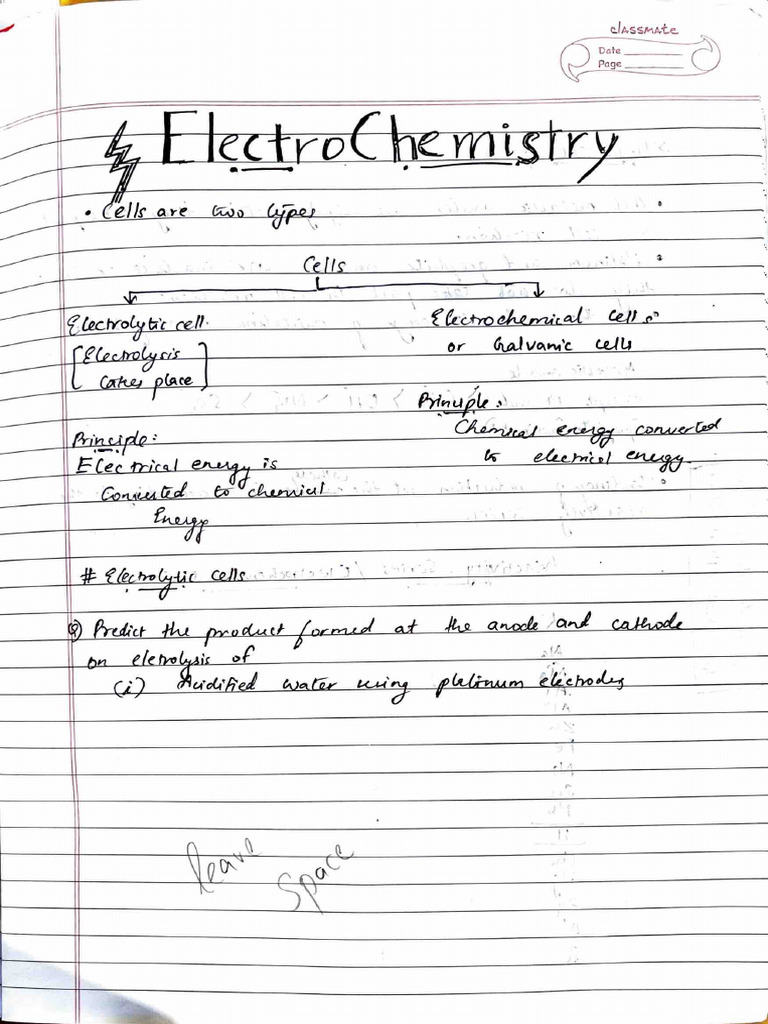 classmate
Date
Page
ElectroChemistry
• Cells are two types
Cells
Electrolytic cell.
[Electrolysis
takes place]
Principle:
Electrical energy is
Converted to chemical
Energy
Electrochemical cells
or Galvanic cells
Principle:
Chemical energy converted
to electrical energy
# Electrolytic cells
Q) Predict the product formed at the anode and cathode
on eletrolysis of
(i) Acidified water using platinum electrodes
leave
space